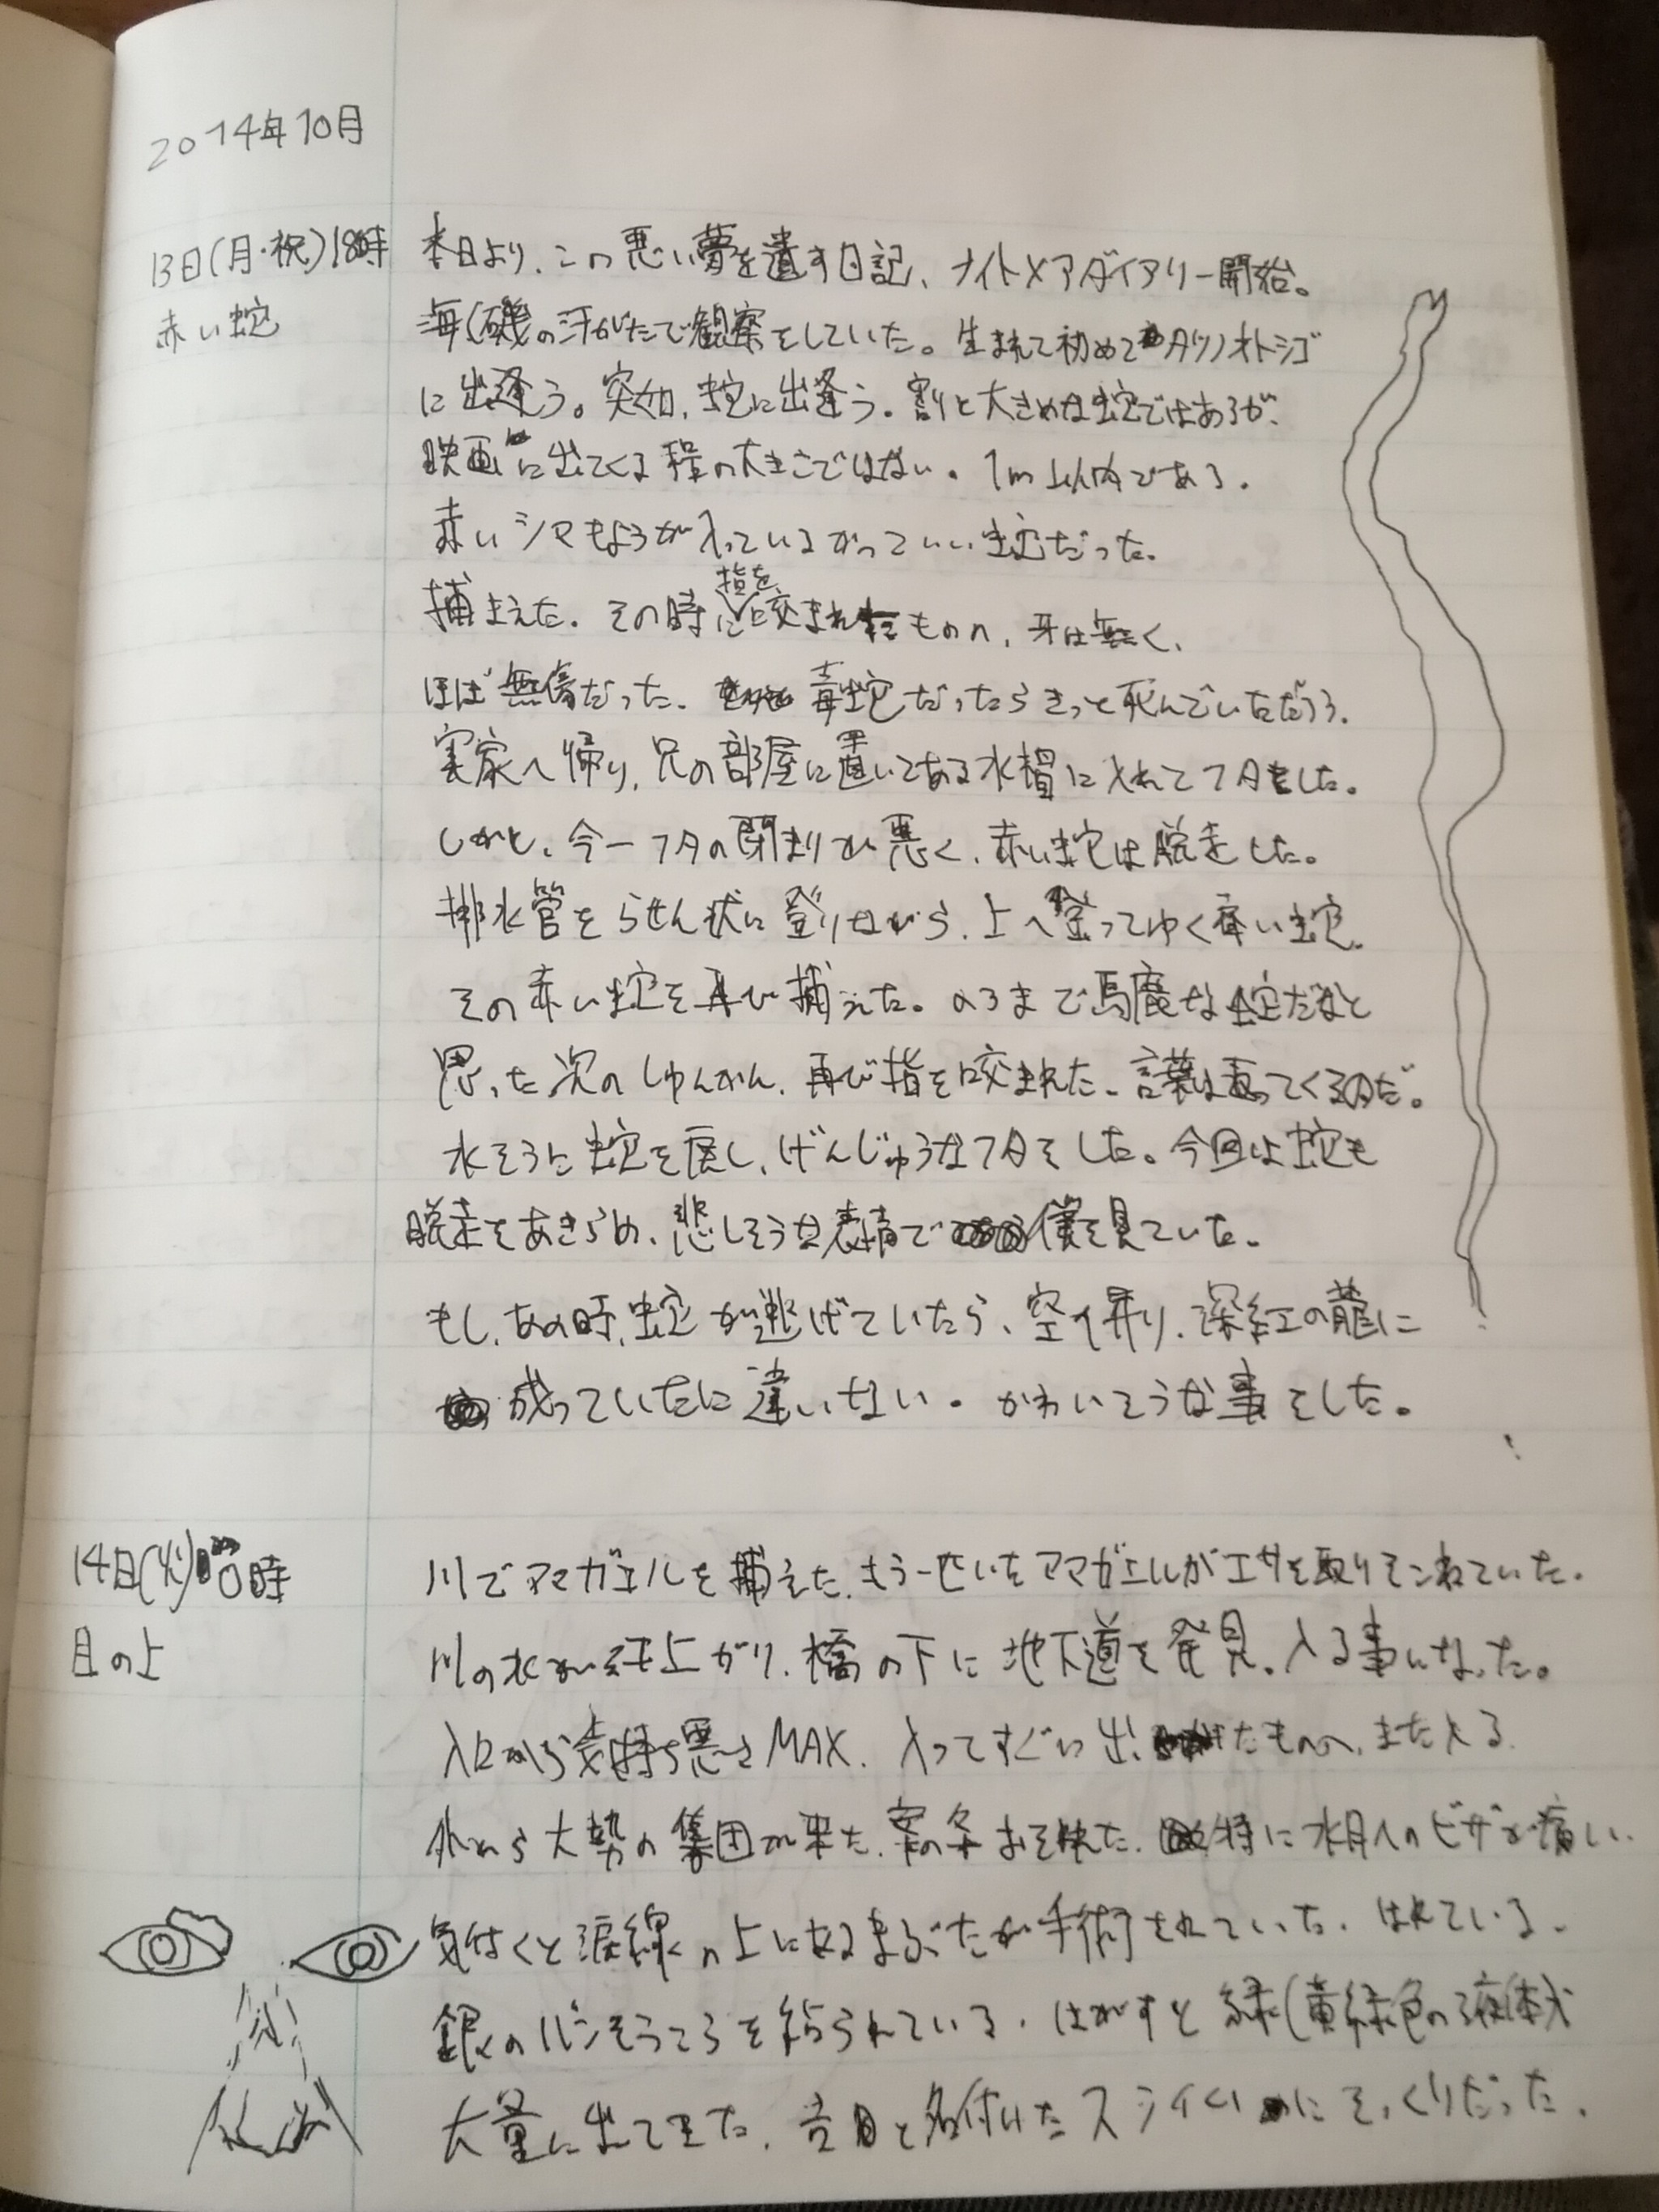 2014年10月
13日(月・祝)18時
赤い蛇
本日より、この悪い夢を遺す日記、ナイトメアダイアリー開始。
海(磯の干がた)で観察をしていた。生まれて初めてタツノオトシゴ
に出逢う。突如、蛇に出逢う。割と大きめな蛇ではあるが、
映画に出てくる程の大きさではない。1m以内である。
赤いシマもようが入っているかっていい蛇だった。
捕まえた。その時に指を咬まれたものの、牙は無く、
ほぼ無傷だった。毒蛇だったらきっと死んでいただろう。
実家へ帰り、兄の部屋に置いてある水槽に入れてフタをした。
しかし、今一フタの閉まりが悪く、赤い蛇は脱走した。
排水管をらせん状に登りながら、上へ登ってゆく赤い蛇。
その赤い蛇を再び捕えた。のろまで馬鹿な蛇だなと
思った次のしゅんかん、再び指を咬まれた。言葉は返ってくるのだ。
水そうに蛇を戻し、げんじゅうなフタをした。今回は蛇も
脱走をあきらめ、悲しそうな表情で僕を見ていた。
もし、あの時、蛇が逃げていたら、空へ昇り、深紅の龍に
成っていたに違いない。かわいそうな事をした。
14日(火) 時
目の上
川でアマガエルを捕えた。もう一匹いたアマガエルがエサを取りそこねていた。
川の水が干上がり、橋の下に地下道を発見。入る事になった。
入口から気持ち悪さMAX。入ってすぐに出たものの、また入る。
外から大勢の集団が来た。案の条おそわれた。特に水月へのヒザが痛い。
気付くと涙線の上にあるまぶたが手術されていた。はれている。
銀のバンそうこうを貼られている。はがすと緑(黄緑色の液体)が
大量に出てきた。 と名付けたスライムにそっくりだった。